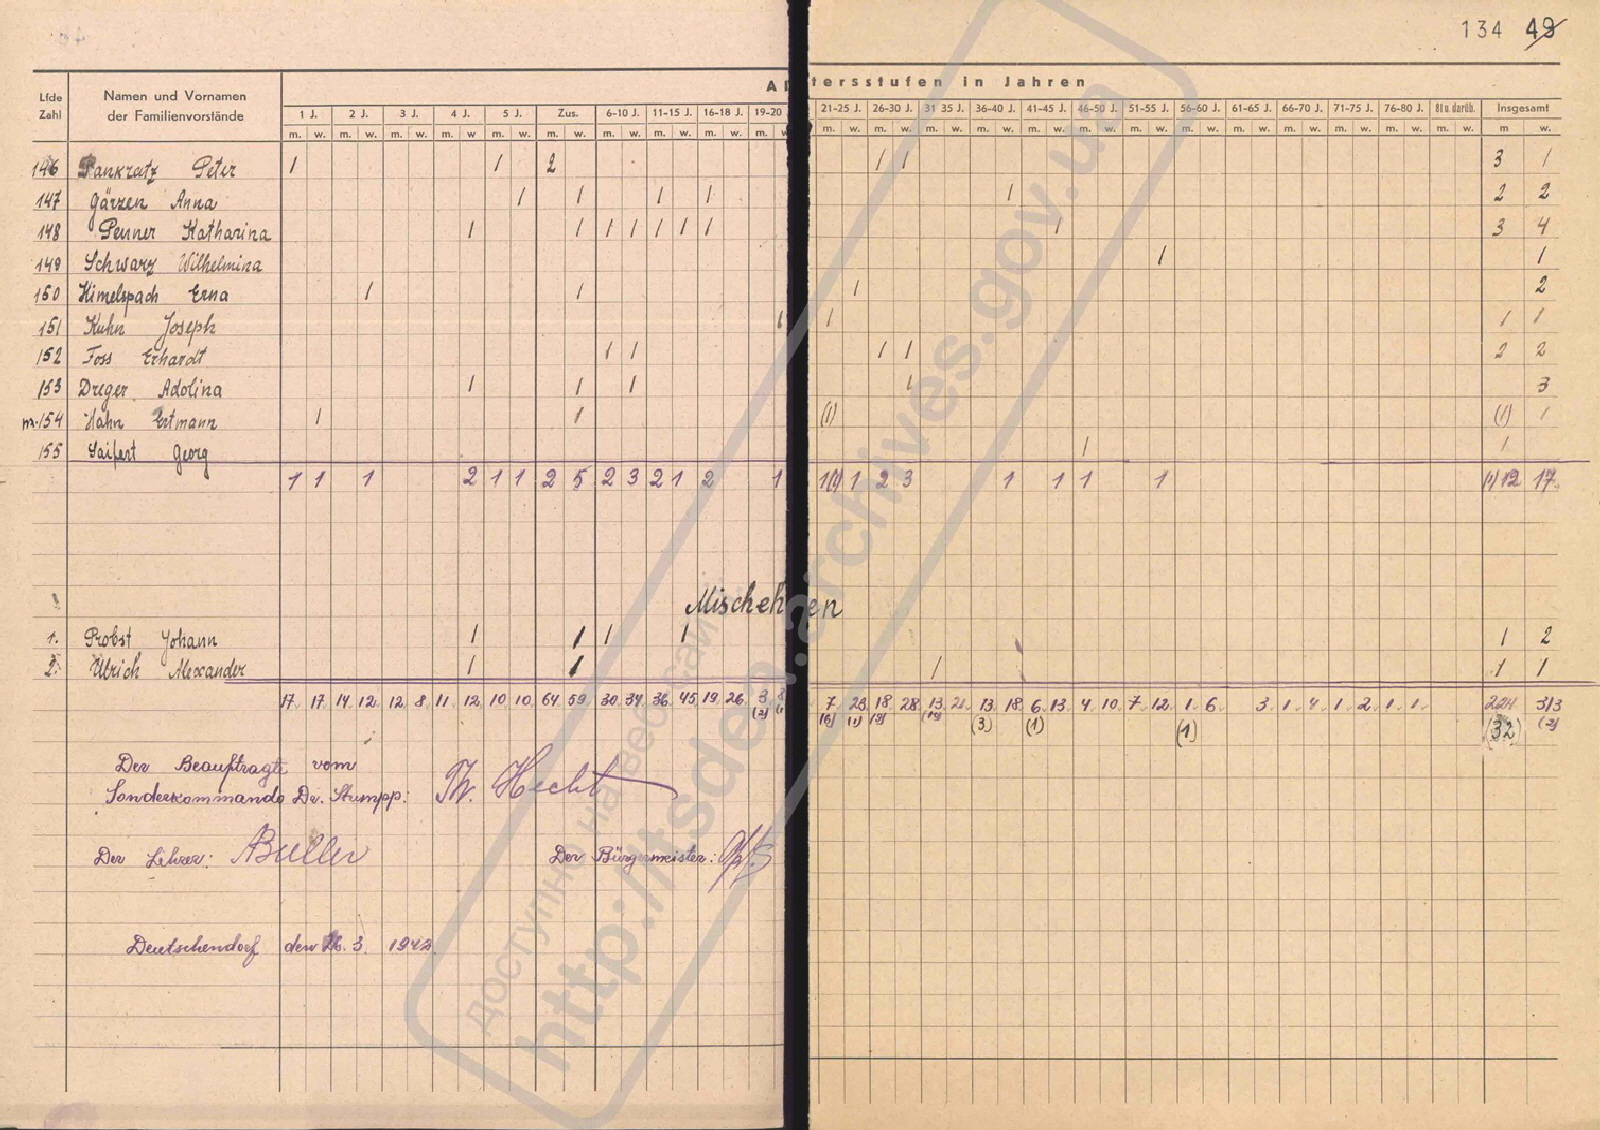 134 49
Altersstufen in Jahren
Lfde Zahl Namen und Vornamen der Familienvorstände 1 J. 2 J. 3 J. 4 J. 5 J. Zus. 6-10 J. 11-15 J. 16-18 J. 19-20 21-25 J. 26-30 J. 31 35 J. 36-40 J. 41-45 J. 46-50 J. 51-55 J. 56-60 J. 61-65 J. 66-70 J. 71-75 J. 76-80 J. 81 u. darüb. Insgesamt
m. w. m. w. m. w. m. w. m. w. m. w. m. w. m. w. m. w. m. w. m. w. m. w. m. w. m. w. m. w. m. w. m. w. m. w. m. w. m. w. m. w. m. w. m w.
146 Pankratz Peter 1 1 2 1 1 3 1
147 Gärzen Anna 1 1 1 1 1 2 2
148 Penner Katharina 1 1 1 1 1 1 1 1 3 4
149 Schwarz Wilhelmina 1 1
150 Himelspach Erna 1 1 1 2
151 Kuhn Joseph 1 1 1 1
152 Foss Erhardt 1 1 1 1 2 2
153 Dreger Adolina 1 1 1 1 3
m-154 Hahn Ertmann 1 1 (1) (1) 1
155 Saifert Georg 1 1
1 1 1 2 1 1 2 5 2 3 2 1 2 1 1(1) 1 2 3 1 1 1 1 (1) 12 17
Mischehen
1. Probst Johann 1 1 1 1 1 2
2. Ulrich Alexander 1 1 1 1 1
17 17 14 12 12 8 11 12 10 10 64 59 30 34 36 45 19 26 3 8 7 23 18 28 13 21 13 18 6 13 4 10 7 12 1 6 3 1 4 1 2 1 1 224 313
(3) (1) (1) (32) (2)
Der Beauftragte vom
Sonderkommando Dr. Stumpp: Th. Hecht
Der Lehrer: ABuller Der Bürgermeister:
Deutschendorf den 26. 3. 1942
доступно на веб-сайті
http://tsdea.archives.gov.ua